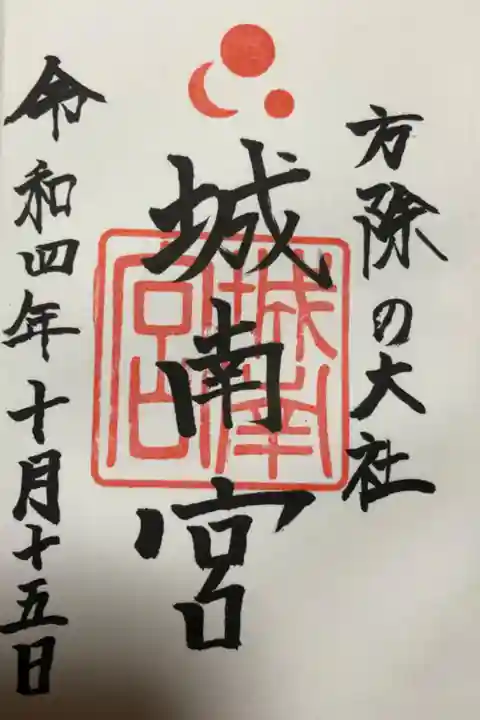 方除の大社
城南宮
城南宮
令和四年十月十五日